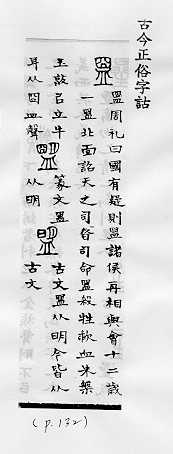 古今正俗字詁
𥁰 盟周礼曰國有疑則盟諸侯再相與會十二歲
一盟北面詔天之司昚司命盟殺牲歃血朱槃
玉敦㠯立牛 𥂗 篆文盟 盟 古文盟从明今皆从
耳从囧血聲 从明 古文
(p.132)